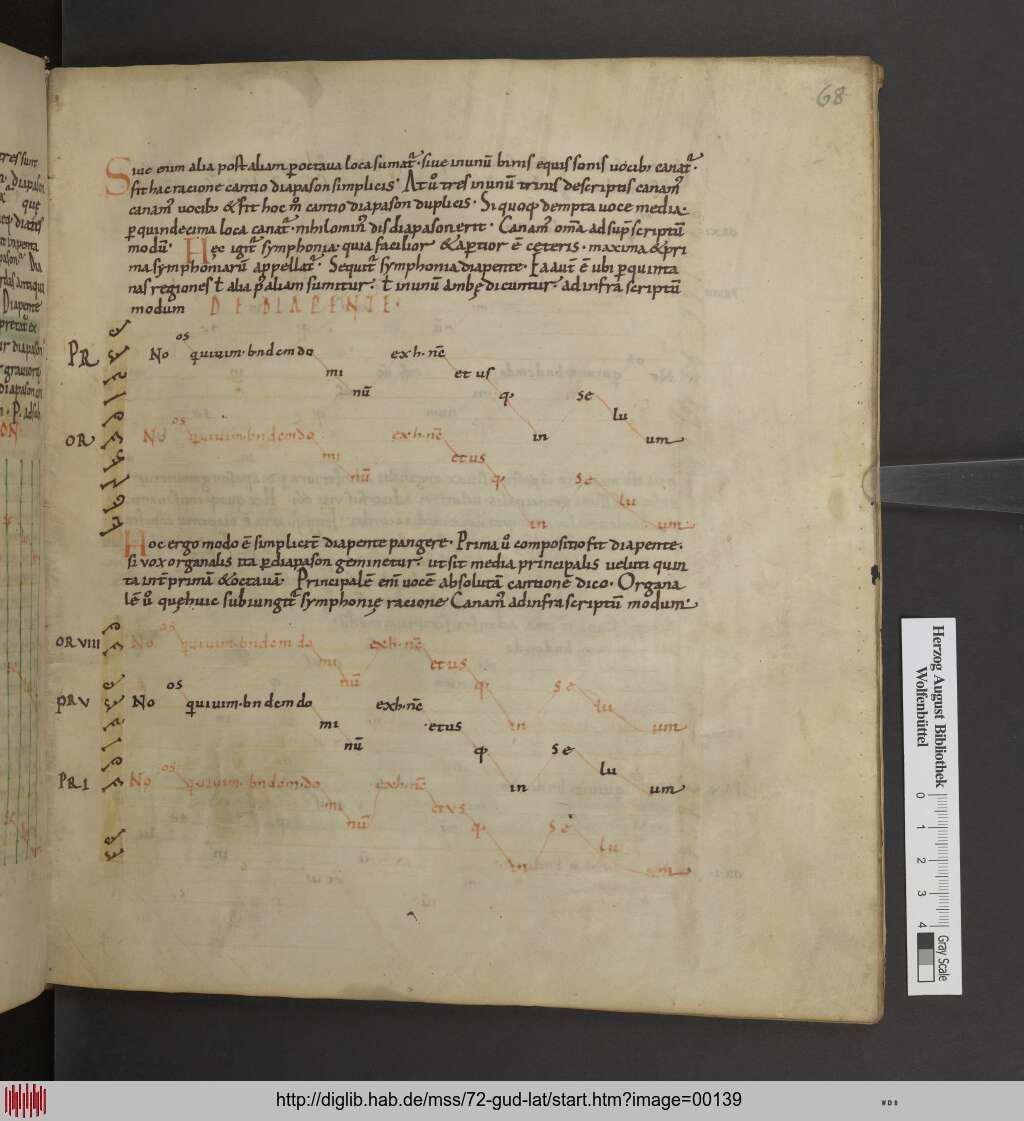 68
Siue enim alia post aliam ꝑ octaua loca sumat̄. siue in unū binis equis sonis vocibꝫ canat̄.
fit hac racione cantio diapason simplicis. At ū tres in unū trinis descriptis canam̄
canam̄ vocibꝫ & fit hoc m̊ cantio diapason duplicis. Si quoqꝫ dempta voce media.
ꝑ quindecima loca canat̄. nihilomin̄ disdiapason erit. Canam̄ om̄a ad sup̄scriptū
modū. Hec igit̄ symphonia. quia facilior & aꝑtior ē ceteris. maxima & pri
ma symphoniarū appellat̄. Sequit̄ symphonia diapente. Ea aut̄ ē ubi ꝑ quinta
nas regiones ł alia p̄ aliam sumitur. ł in unum ambę dicuntur. ad infra scriptū
modum DE DIAPENTE.
PR No os qui uiuim. bn dem do mi nū ex h. nē et us qꝫ in se lu um
OR No os qui uiuim. bn dem do mi nū ex h. nē et us qꝫ in se lu um
Hoc ergo modo ē simpliciter diapente pangere. Prima ū compositio fit diapente.
si vox organalis ita ꝑ diapason geminetur. ut sit media principalis veluti quin
ta int̄ primā & octauā. Principalē eni vocē absolutā cantionē dico. Organa
lē ū quę huic subiungit̄ symphonię racione Canam̄ ad infra scriptū modum.
OR VIII No os qui uiuim. bn dem do mi nū ex h. nē et us qꝫ in se lu um
PR V No os qui uiuim. bn dem do mi nū ex h. nē et us qꝫ in se lu um
PR I No os qui uiuim. bn dem. do mi nū ex h. nē et us qꝫ in se lu um
Herzog August Bibliothek
Wolfenbüttel
0 1 2 3 4
Gray Scale
http://diglib.hab.de/mss/72-gud-lat/start.htm?image=00139